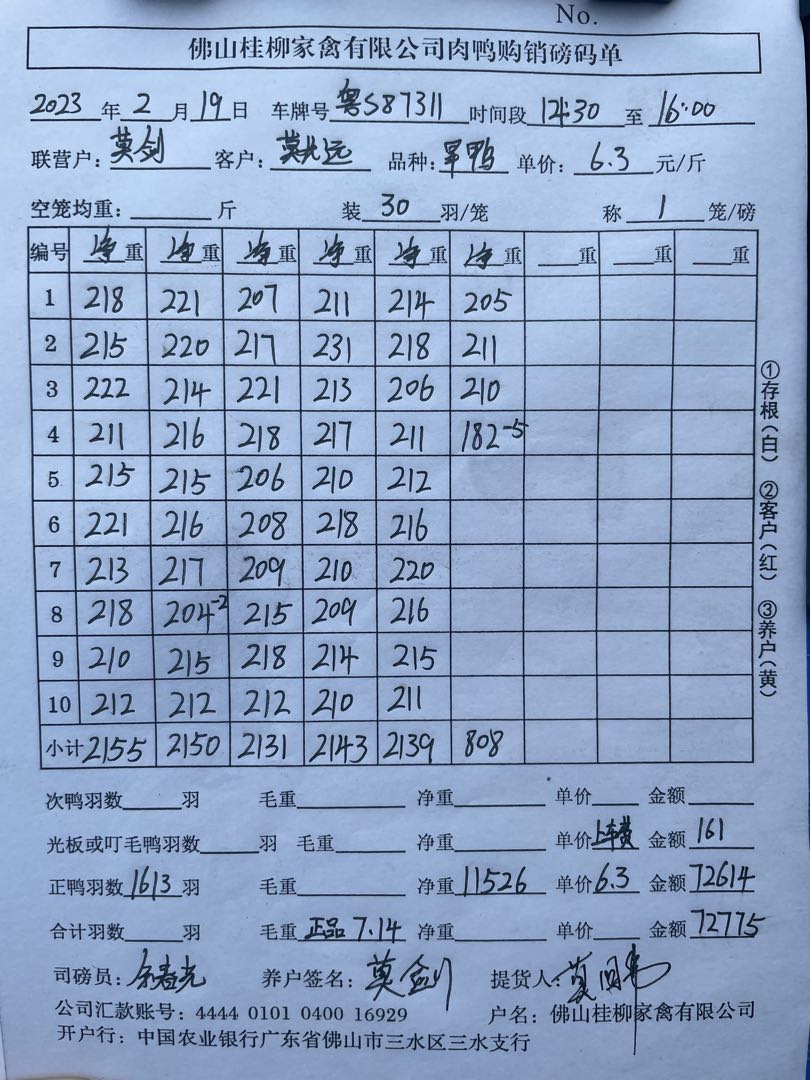 No.
佛山桂柳家禽有限公司肉鸭购销磅码单
2023 年 2 月 19 日 车牌号 粤S87311 时间段 14:30 至 16:00
联营户: 莫剑 客户: 莫光远 品种: 旱鸭 单价: 6.3 元/斤
空笼均重: 斤 装 30 羽/笼 称 1 笼/磅
编号 净重 净重 净重 净重 净重 净重 重 重 重
1 218 221 207 211 214 205
2 215 220 217 231 218 211
3 222 214 221 213 206 210
4 211 216 218 217 211 182-5
5 215 215 206 210 212
6 221 216 208 218 216
7 213 217 209 210 220
8 218 204-2 215 209 216
9 210 215 218 214 215
10 212 212 212 210 211
小计 2155 2150 2131 2143 2139 808
次鸭羽数 羽 毛重 净重 单价 金额
光板或叮毛鸭羽数 羽 毛重 净重 单价 上车费 金额 161
正鸭羽数 1613 羽 毛重 净重 11526 单价 6.3 金额 72614
合计羽数 羽 毛重 正品 7.14 净重 单价 金额 72775
司磅员: 养户签名: 莫剑 提货人:
公司汇款账号: 4444 0101 0400 16929 户名: 佛山桂柳家禽有限公司
开户行: 中国农业银行广东省佛山市三水区三水支行
①存根(白) ②客户(红) ③养户(黄)